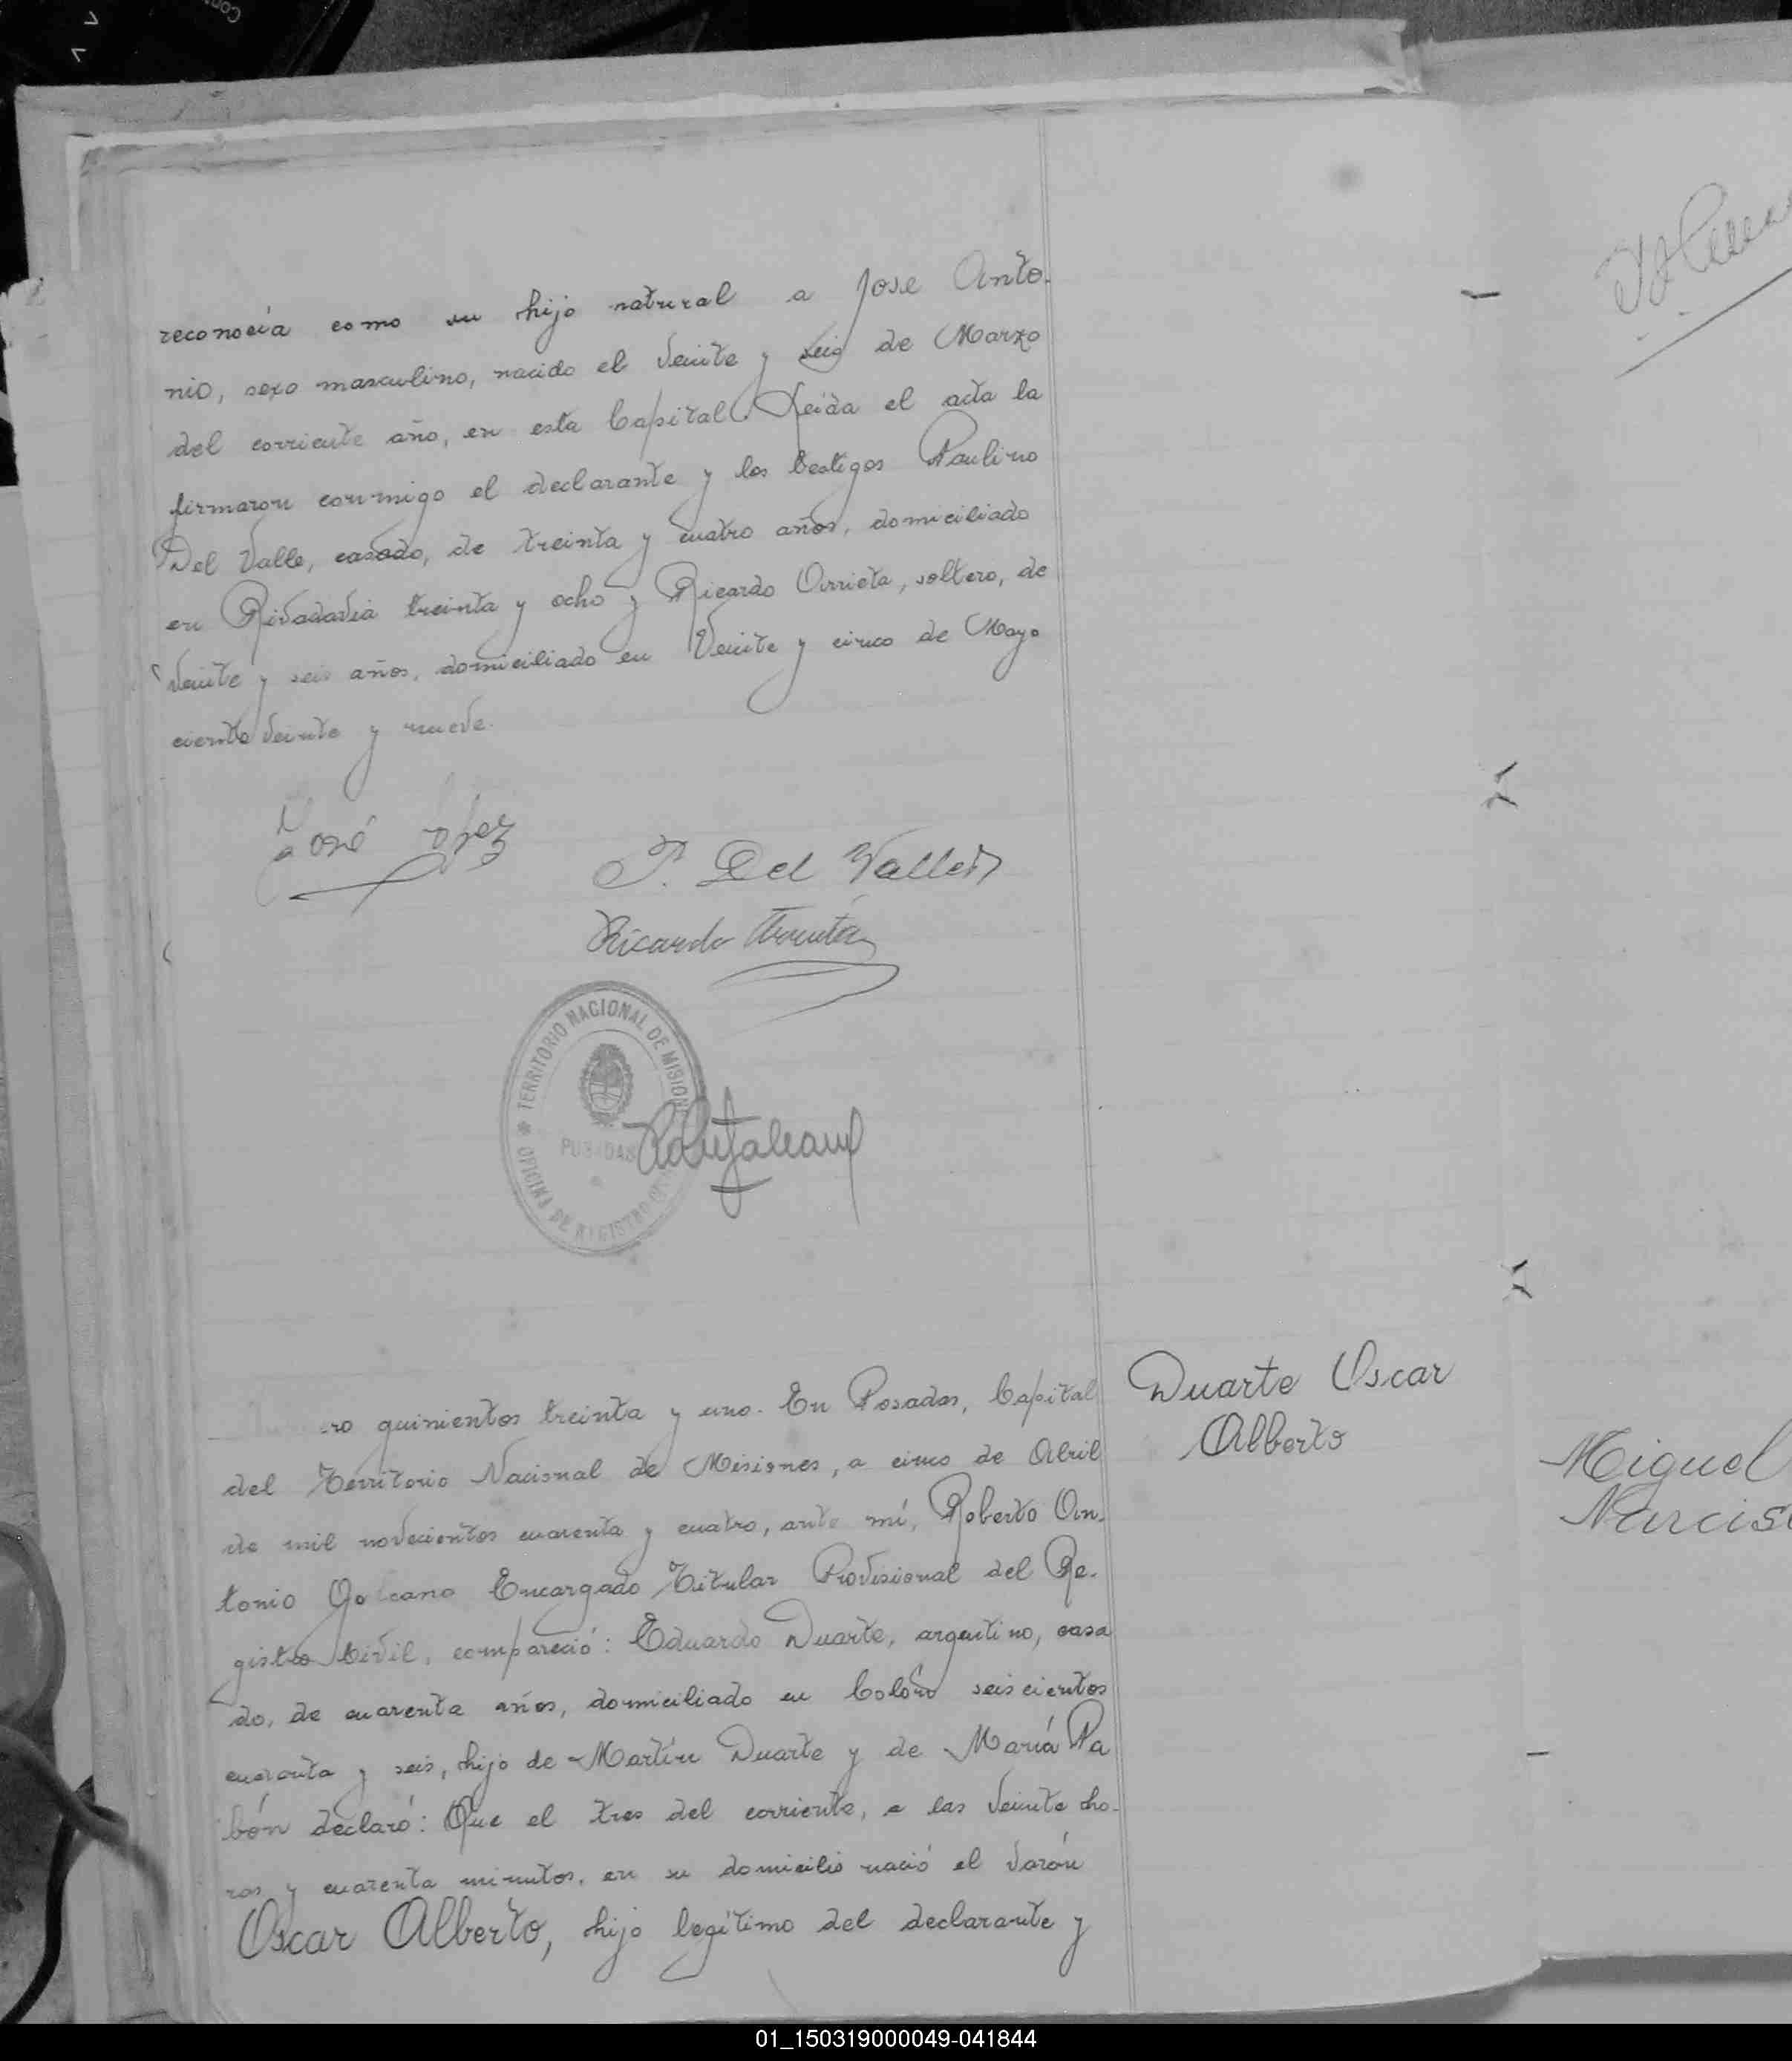 reconocía como su hijo natural a Jose Anto-
nio, sexo masculino, nacido el veinte y seis de Marzo
del corriente año, en esta Capital. Leida el acta la
firmaron conmigo el declarante y los testigos Paulino
Del Valle, casado, de treinta y cuatro años, domiciliado
en Rivadavia treinta y ocho y Ricardo Arrieta, soltero, de
veinte y seis años, domiciliado en Veinte y cinco de Mayo
ciento veinte y nueve.
José López
P. Del Valle
Ricardo Arrieta
TERRITORIO NACIONAL DE MISIONES
POSADAS
OFICINA DE REGISTRO CIVIL
ro quinientos treinta y uno. En Posadas, Capital
Duarte Oscar
Alberto
del Territorio Nacional de Misiones, a cinco de Abril
de mil novecientos cuarenta y cuatro, ante mí, Roberto An-
tonio Galeano Encargado Titular Provisional del Re-
gistro Civil, compareció: Eduardo Duarte, argentino, casa
do, de cuarenta años, domiciliado en Colón seiscientos
cuarenta y seis, hijo de Martín Duarte y de María Pa
bón declaró: Que el tres del corriente, a las veinte ho-
ras y cuarenta minutos, en su domicilio nació el varón
Oscar Alberto, hijo legítimo del declarante y
Miguel
Narcis
01_150319000049-041844